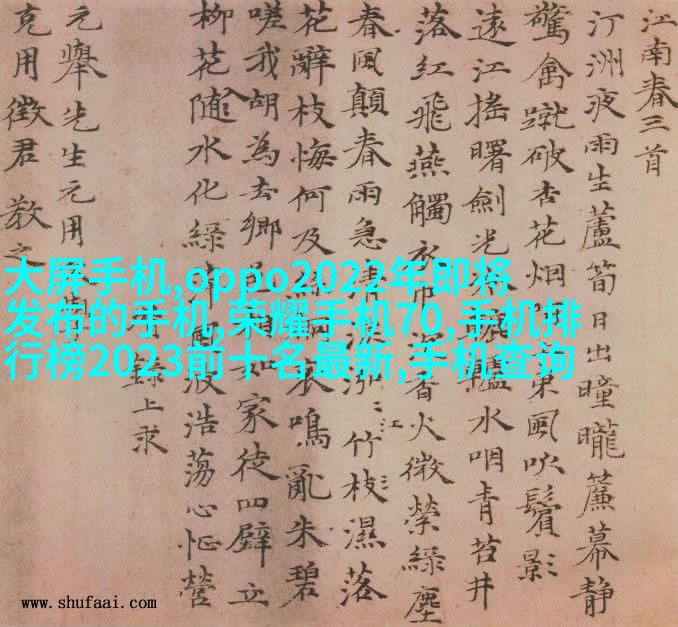 江南春三首
汀洲夜雨生蘆筍日出曈曨簾幕靜
驚禽蹴破杏花烟東風吹鬢影
遠江搖曙劍光水咽青苔井
落紅飛燕觸衣巾香火微縈綠塵
春風顛春雨急清泓江竹枝濕落
花辭枝悔何及鳴亂朱碧
嗟我胡為去鄉家徒四壁立
柳花隨水化綠波浩蕩心怔營
錄上求
元舉先生元用
克用徵君教之
大屏手机,oppo2022年即将
发布的手机,荣耀手机70,手机排
行榜2023前十名最新,手机查询
www.shufaai.com